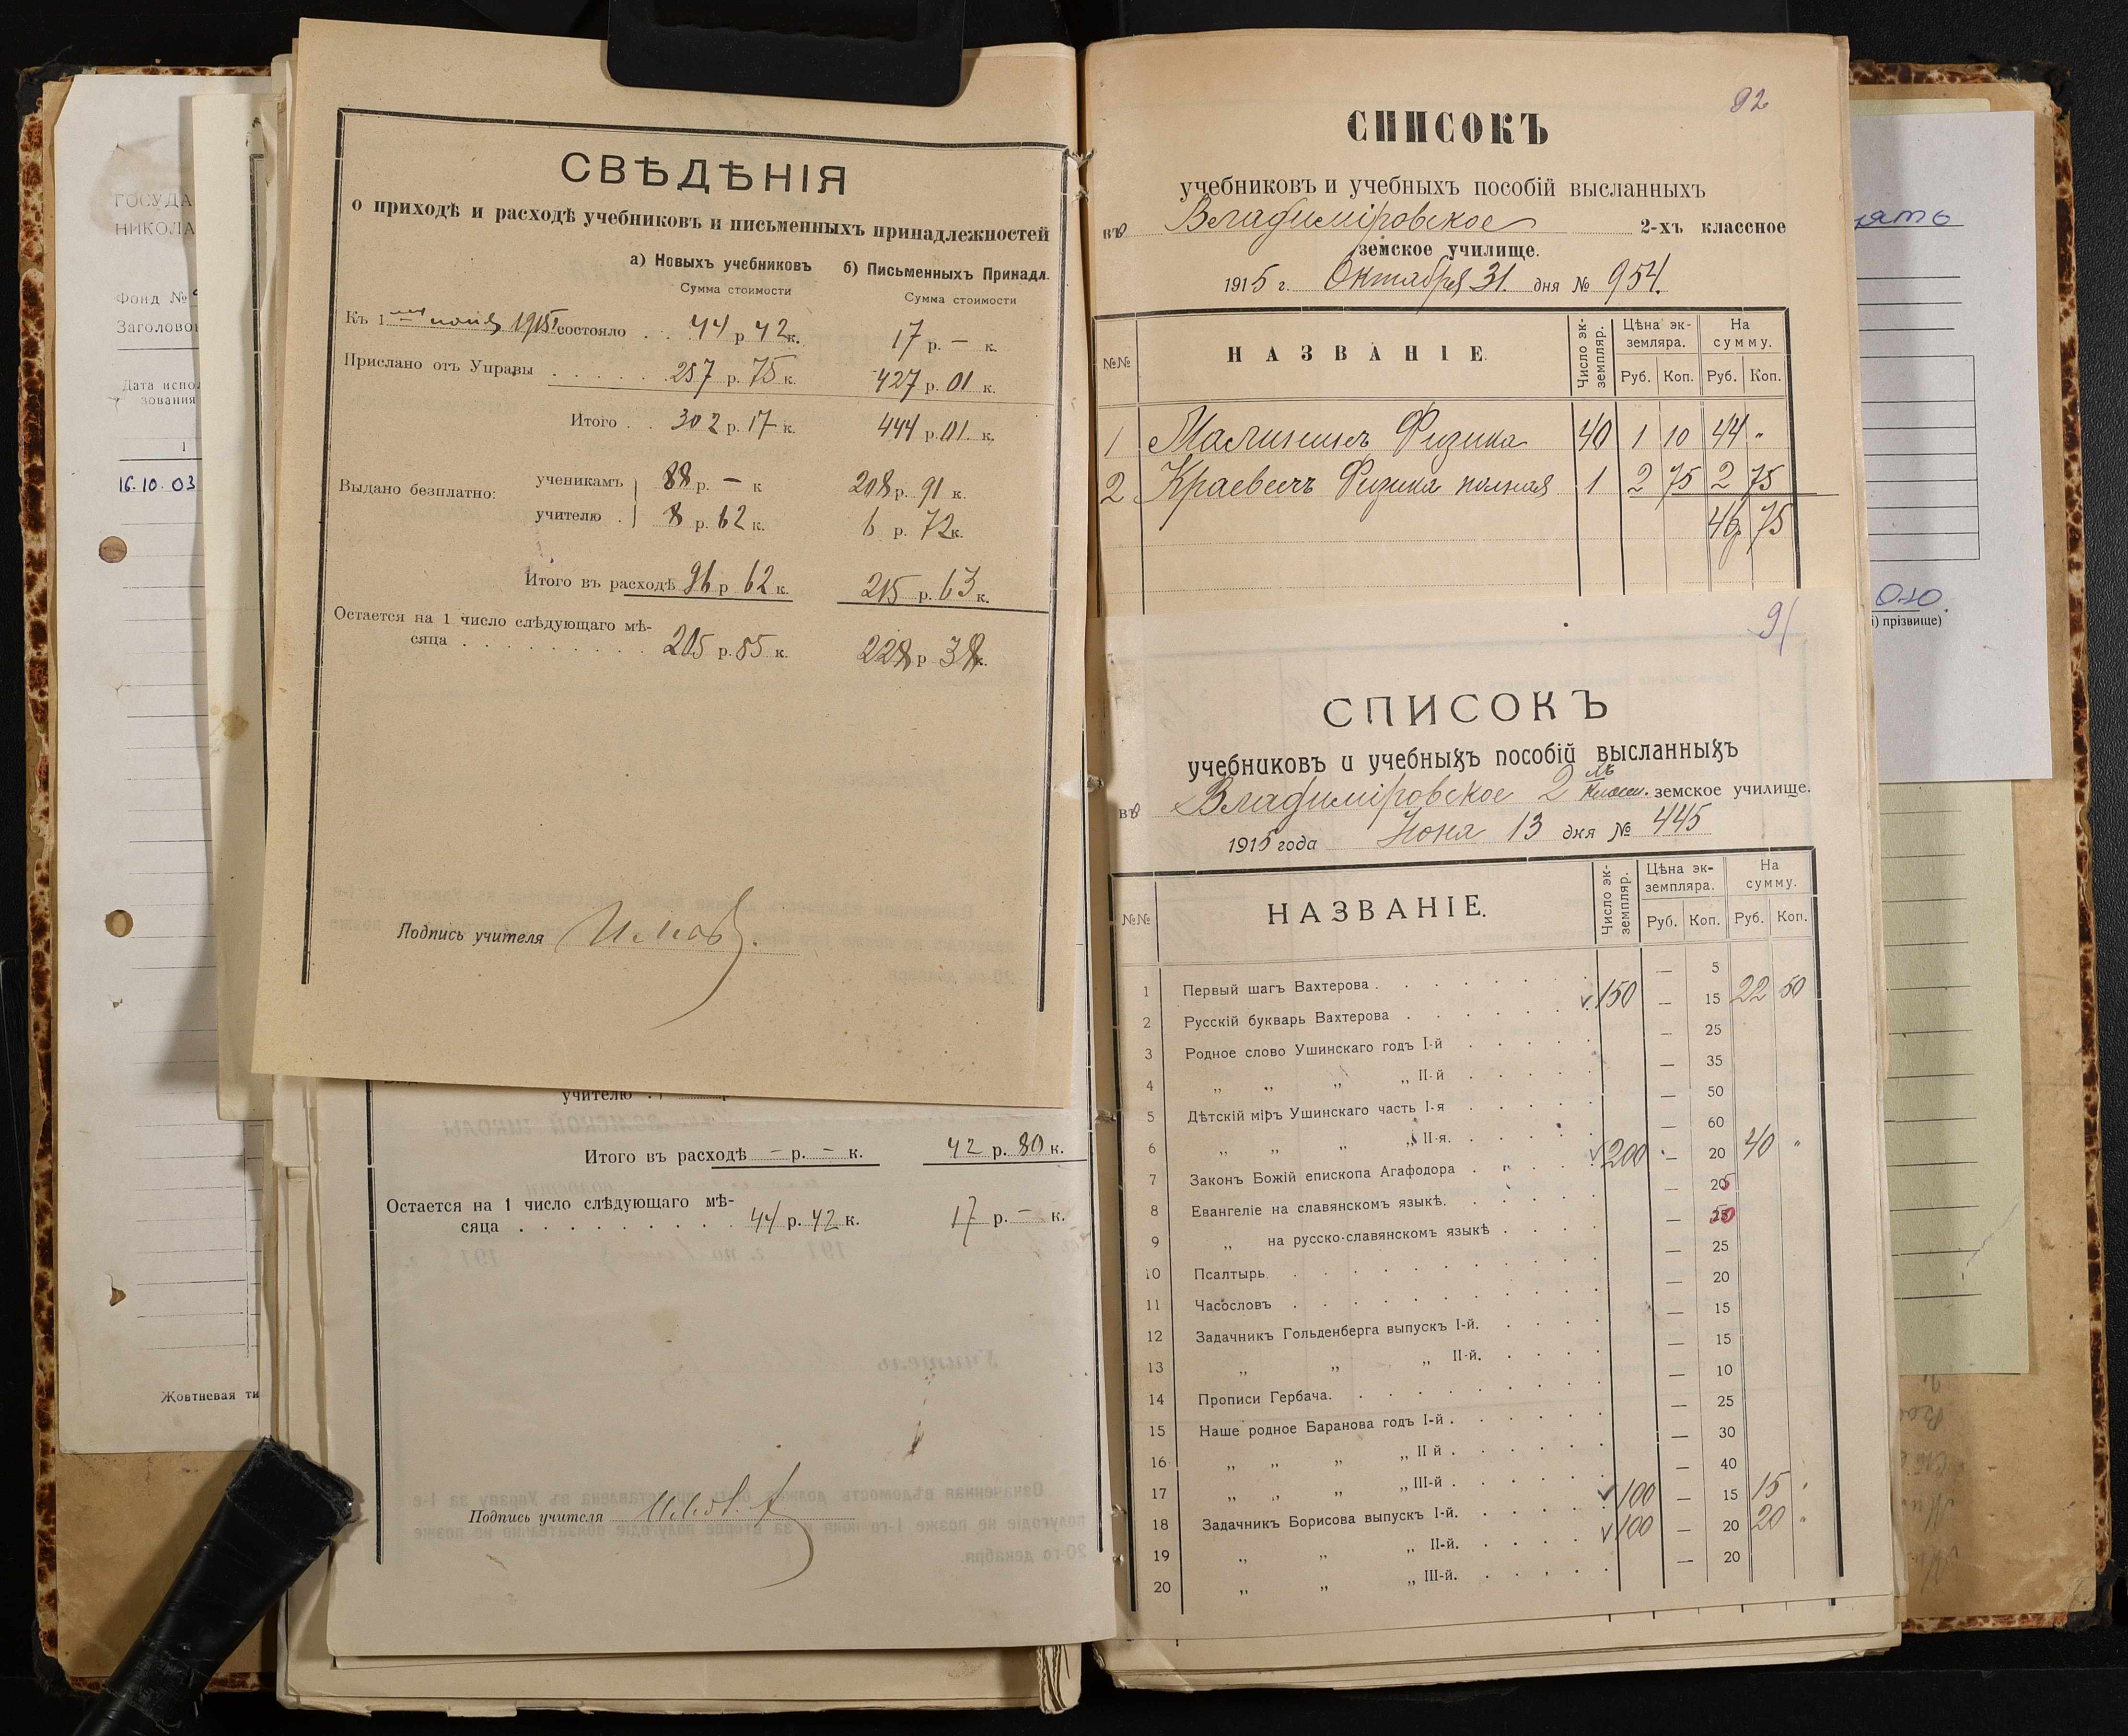 СВѢДѢНІЯ
о приходѣ и расходѣ учебниковъ и письменныхъ принадлежностей
а) Новыхъ учебниковъ б) Письменныхъ Принадл.
Сумма стоимости Сумма стоимости
Къ 1 1915 состояло . . 44 р 42 к. 17 р. — к.
Прислано отъ Управы . . . . . . 257 р. 75 к. 427 р. 01 к.
Итого . . 302 р. 17 к. 444 р. 01 к.
Выдано безплатно:
ученикамъ 88 р. — к 208 р. 91 к.
учителю . 8 р. 62 к. 6 р. 72 к.
Итого въ расходѣ 96 р 62 к. 215 р. 63 к.
Остается на 1 число слѣдующаго мѣ-
сяца . . . . . . . . . 205 р. 55 к. 228 р 38 к.
Подпись учителя
учителю .
Итого въ расходѣ — р. — к. 42 р. 80 к.
Остается на 1 число слѣдующаго мѣ-
сяца . . . . . . . . . 44 р. 42 к. 17 р. — к.
Подпись учителя
92
СПИСОКЪ
учебниковъ и учебныхъ пособій высланныхъ
въ Владиміровское 2-хъ классное
земское училище.
1915 г. Октября 31. дня № 954.
№№ НАЗВАНІЕ. Число эк-земпляр. Цѣна эк-земляра. На сумму.
Руб. Коп. Руб. Коп.
1 Малининъ Физика 40 1 10 44 "
2 Краевичъ Физика полная 1 2 75 2 75
46 75
91
СПИСОКЪ
учебниковъ и учебныхъ пособій высланныхъ
въ Владиміровское 2 хъ класн. земское училище.
1915 года Іюня 13 дня № 445
№№ НАЗВАНІЕ. Число эк-земпляр. Цѣна эк-земпляра. На сумму.
Руб. Коп. Руб. Коп.
1 Первый шагъ Вахтерова . — 5
2 Русскій букварь Вахтерова . 150 — 15 22 50
3 Родное слово Ушинскаго годъ I-й — 25
4 „ „ „ „ II-й — 35
5 Дѣтскій міръ Ушинскаго часть I-я — 50
6 „ „ „ „ II-я. — 60
7 Законъ Божій епископа Агафодора . 200 — 20 40 "
8 Евангеліе на славянскомъ языкѣ. — 20
9 „ на русско-славянскомъ языкѣ . — 50
10 Псалтырь. — 25
11 Часословъ — 20
12 Задачникъ Гольденберга выпускъ I-й. — 15
13 „ „ „ II-й. — 15
14 Прописи Гербача. — 10
15 Наше родное Баранова годъ I-й . — 25
16 „ „ „ „ II й . — 30
17 „ „ „ „ III-й . — 40
18 Задачникъ Борисова выпускъ I-й. 100 — 15 15 "
19 „ „ „ II-й. 100 — 20 20 "
20 „ „ „ III-й. — 20
ГОСУДА
НИКОЛА
Фонд №
Заголово
Дата испол
зования
1
16.10.03
Жовтневая ти
ять
) прізвище)